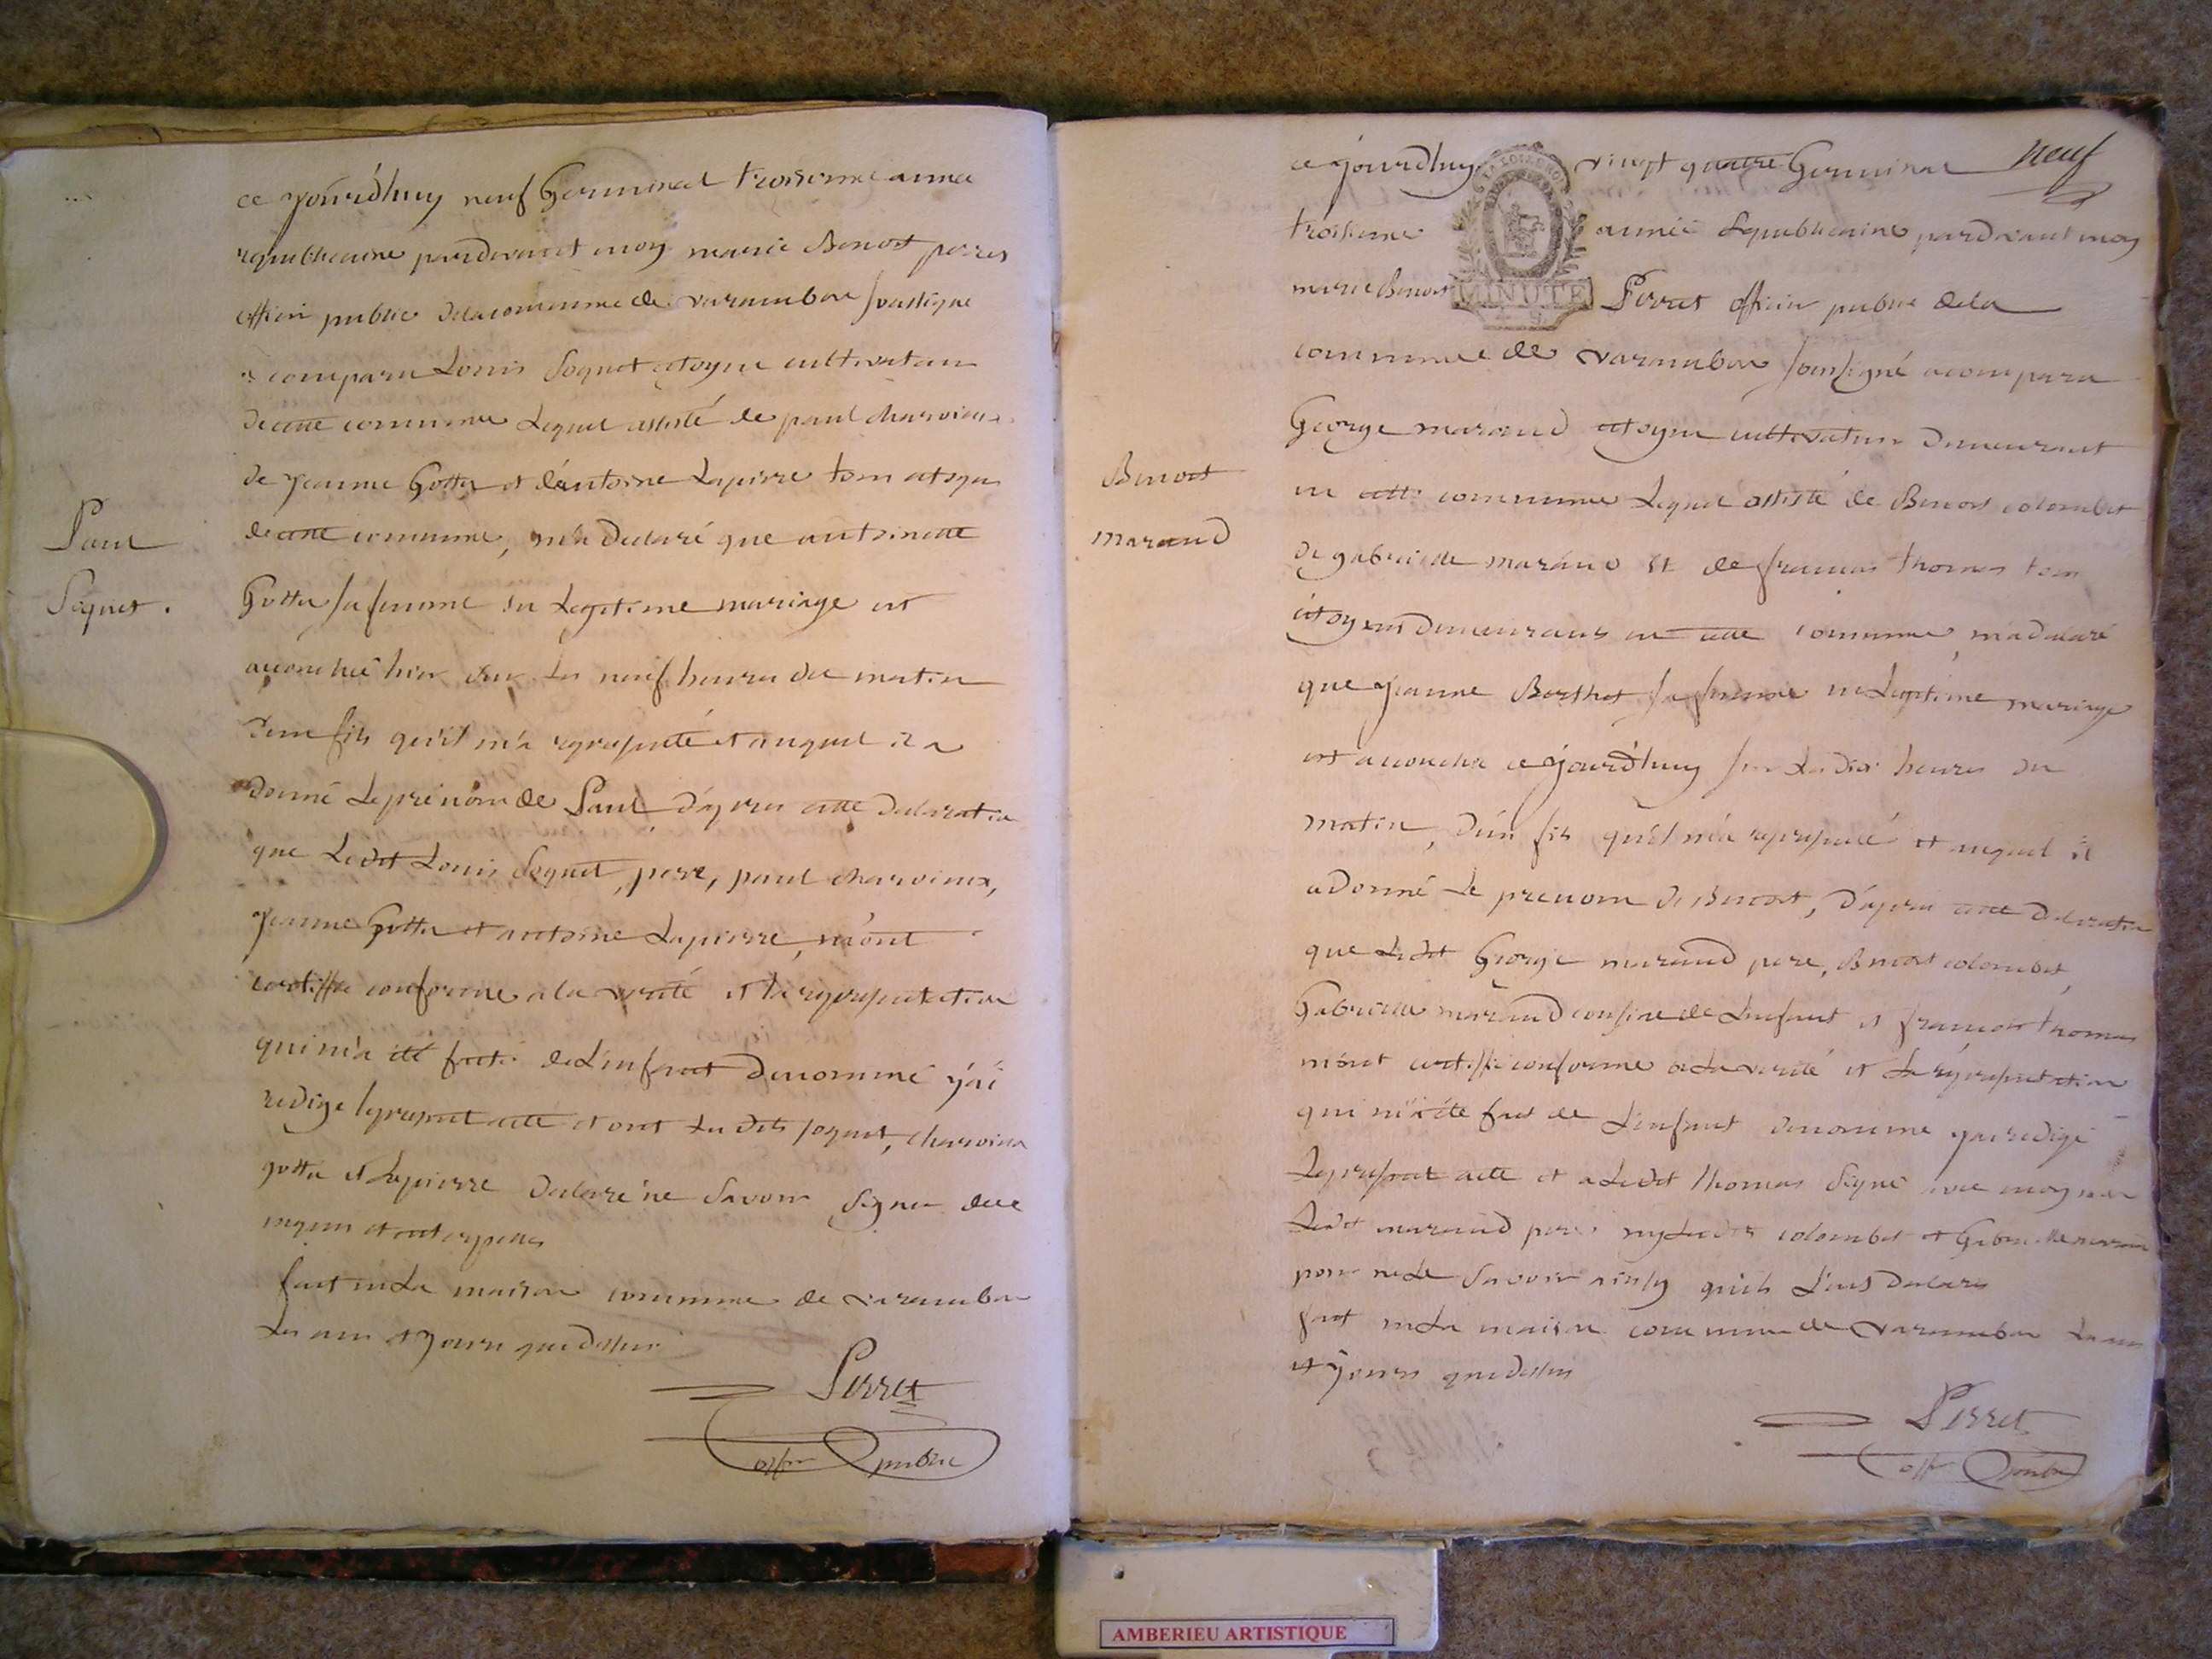 ce jourd'huy neuf Germinal troisieme année
republicaine pardevant moy marie Benoit perret
officier public de la commune de varambon soussigné
a comparu Louis Soquet citoyen cultivateur
de cette commune Lequel assisté de paul charvieux
de jeanne Gotta et d'antoine Lapierre tous citoyens
de cette commune, m'a declaré que antoinette
Paul
Soquet.
Gotta sa femme en Legitime mariage est
accouchée hier sur les neuf heures du matin
d'un fils qu'il m'a representé et auquel il a
donné Le prénom de Paul d'apres cette declaration
que Ledit Louis Soquet, pere, paul charvieux,
jeanne Gotta et antoine Lapierre, m'ont
certiffié conforme a la verité et la representation
qui m'a été faite de L'enfant denommé j'ai
redigé le present acte et ont Les dits soquet, charvieux
gotta et Lapierre declaré ne Savoir Signer de ce
requis et interpellés
fait en La maison commune de varambon
Les an et jours que dessus
Perret
offier public
neuf
ce jourd'huy vingt quatre Germinal
MINUTE
troisieme année Republicaine pardevant moy
marie Benoit Perret officier public de la
commune de varambon soussigné a comparu
George maraud citoyen cultivateur demeurant
Benoit
maraud
en cette commune Lequel assisté de Benoit colombet
de gabrielle maraud et de francois thomas tous
citoyens demeurans en cette commune, m'a declaré
que jeanne Berthet sa femme en Legitime mariage
est accouchée ce jourd'huy sur Les dix heures du
matin, d'un fils qu'il m'a representé et auquel il
a donné Le prenom de Benoit, d'apres cette declaration
que Ledit George maraud pere, Benoit colombet,
Gabrielle maraud cousine de L'enfant et francois thomas
m'ont certiffié conforme a La verité et La representation
qui m'a été fait de L'enfant denommé j'ai redigé
Le present acte et a Ledit thomas Signé avec moy non
Ledit maraud pere ny Lesdits colombet et Gabrielle maraud
pour ne Le Savoir ainsy qu'ils L'ont declaré
fait en La maison commune de varambon Les an
et jours que dessus
Perret
off public
AMBERIEU ARTISTIQUE